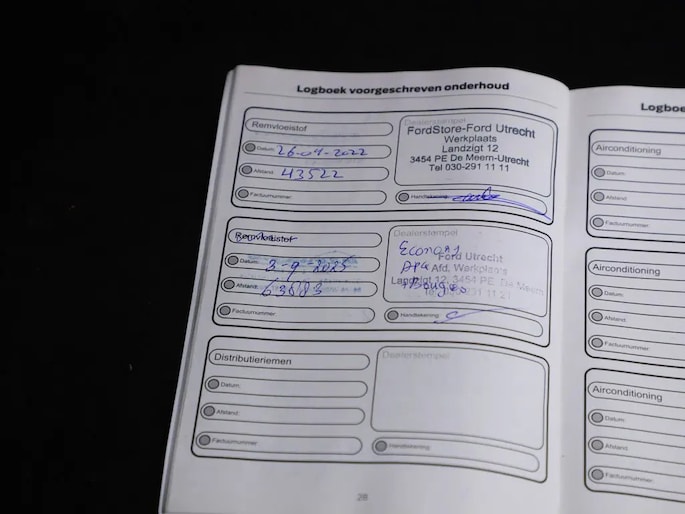 Logboek voorgeschreven onderhoud
Remvloeistof
Datum: 26-04-2022
Afstand: 43522
Factuurnummer:
Dealerstempel
FordStore-Ford Utrecht
Werkplaats
Landzigt 12
3454 PE De Meern-Utrecht
Tel 030-291 11 11
Handtekening:
Remvloeistof
Datum: 3-9-2025
Afstand: 63683
Factuurnummer:
Dealerstempel
Economy
Ford Utrecht
Afd. Werkplaats
Landzigt 12, 3454 PE De Meern
+Bougies
Handtekening:
Distributieriemen
Datum:
Afstand:
Factuurnummer:
Dealerstempel
Handtekening:
28
Logboe
Airconditioning
Datum:
Afstand:
Factuurnummer:
Airconditioning
Datum:
Afstand:
Factuurnummer:
Airconditioning
Datum:
Afstand:
Factuurnummer: